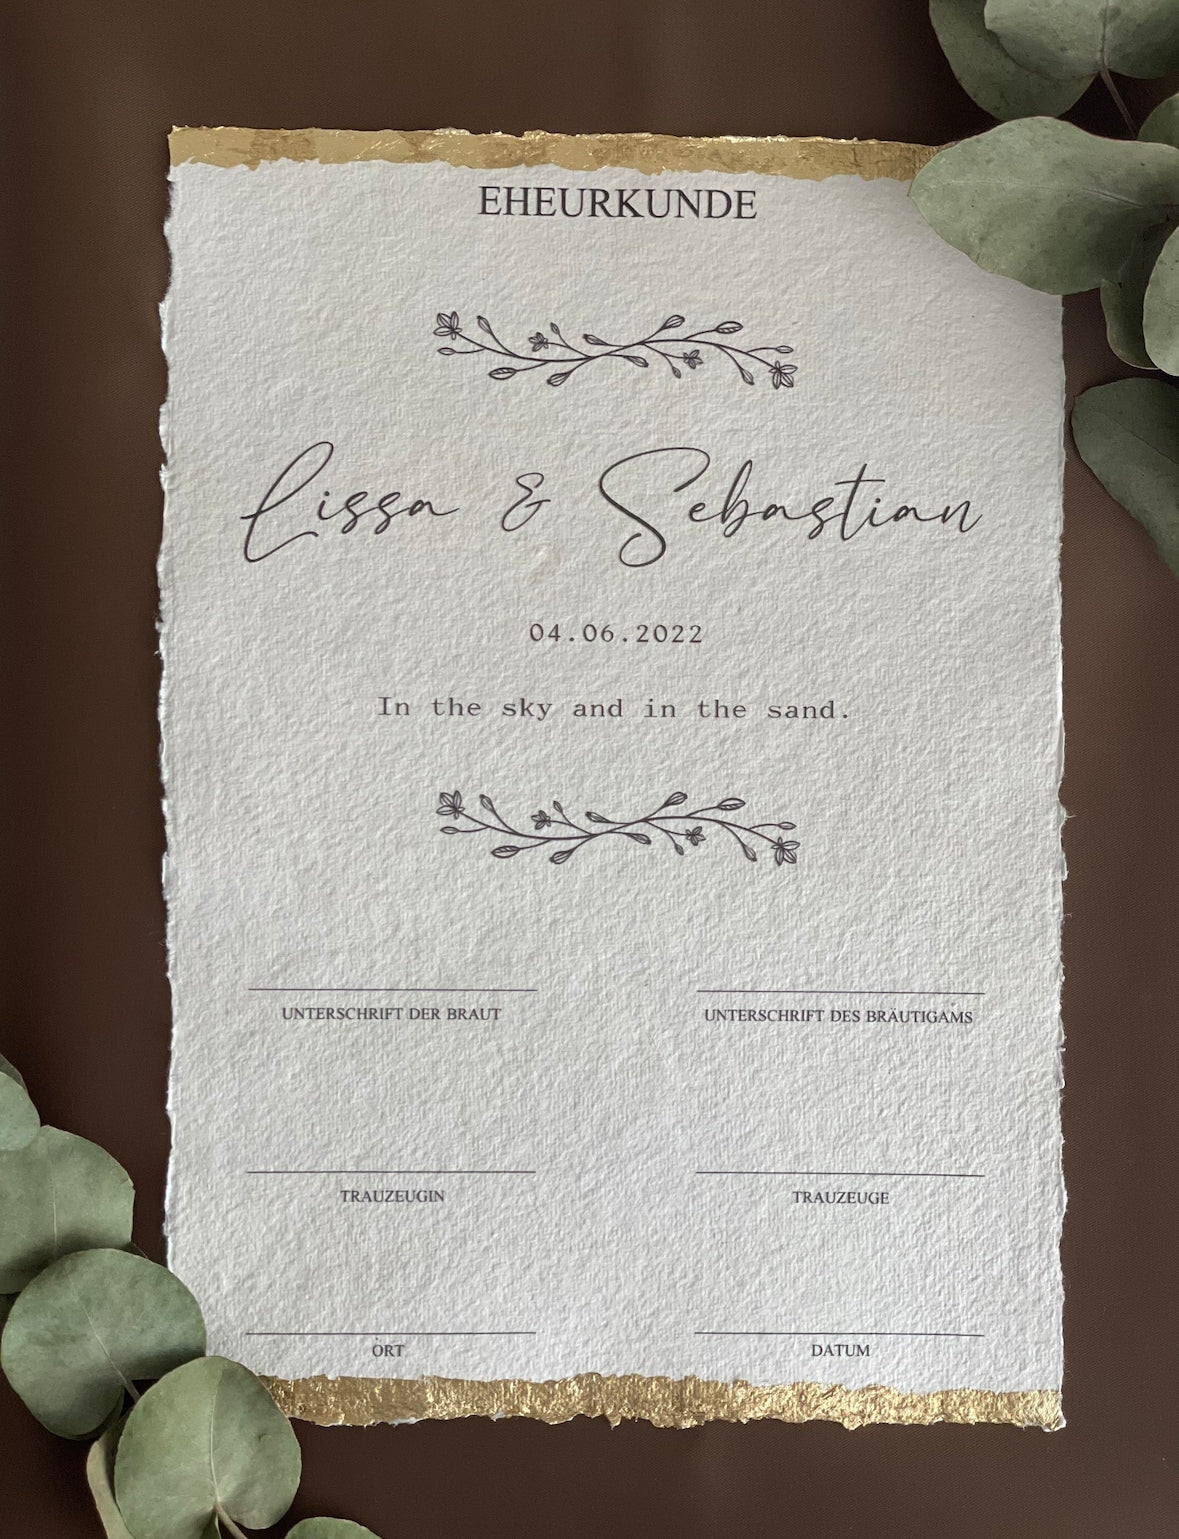 EHEURKUNDE
Lissa & Sebastian
04.06.2022
In the sky and in the sand.
UNTERSCHRIFT DER BRAUT
UNTERSCHRIFT DES BRÄUTIGAMS
TRAUZEUGIN
TRAUZEUGE
ORT
DATUM